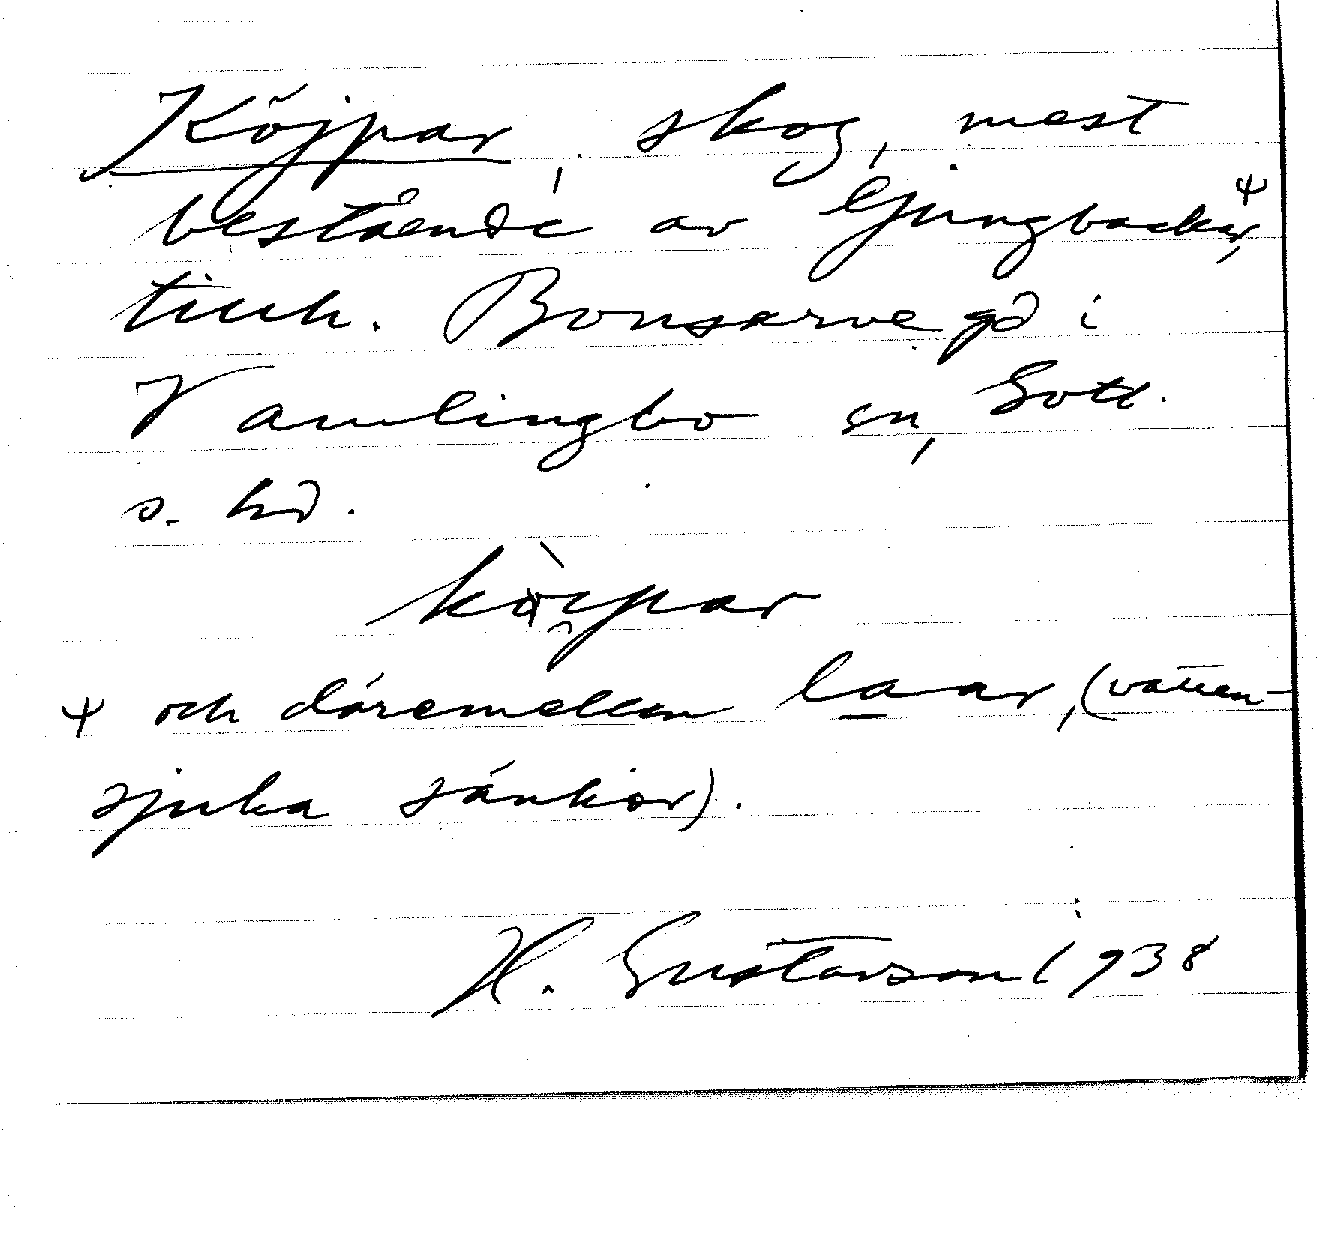 Köjpar, skog, mest
bestående av ljungbackar, ψ
tillh. Bonsarve gd i
Vamlingbo sn, Gotl.
s. hd.
kòi̯par
ψ och däremellan laar, (vatten-
sjuka sänkor).
H. Gustavson 1938